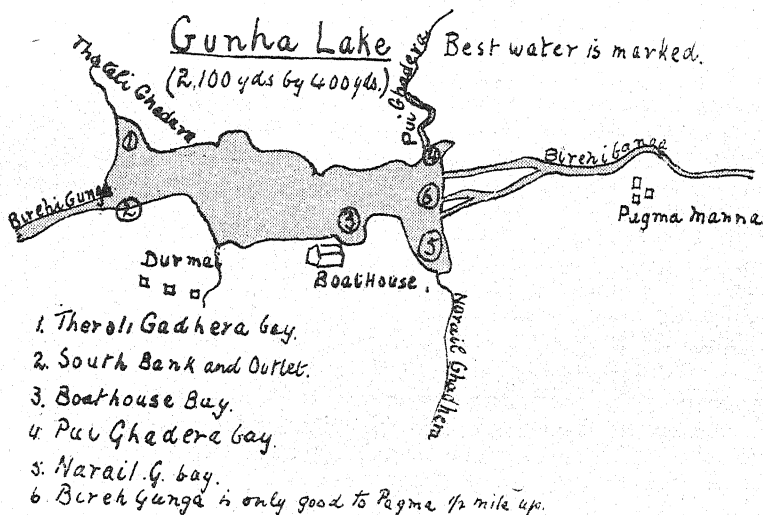 Gunha Lake
(2,100 yds by 400 yds.)
Best water is marked.
Thatali Ghadera
Pui Ghadera
Birehi Ganga
Pagma Manna
Birehi Gunga
Durma
Boat House.
Narail Ghadhera
1
2
3
4
6
5
1. Therali Gadhera bay.
2. South Bank and Outlet.
3. Boathouse Bay.
4. Pui Ghadera bay.
5. Narail. G. bay.
6 Bireh Gunga is only good to Pagma 1/2 mile up.